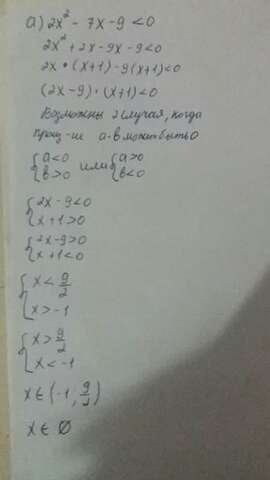 а) 2x² - 7x - 9 < 0
2x² + 2x - 9x - 9 < 0
2x • (x+1) - 9(x+1) < 0
(2x - 9) • (x+1) < 0
Возможны 2 случая, когда
произ-ие а·в может быть 0
{a<0 или {a>0
{в>0 {в<0
{2x - 9 < 0
{x + 1 > 0
{2x - 9 > 0
{x + 1 < 0
{x < 9/2
{x > -1
{x > 9/2
{x < -1
x ∈ (-1, 9/2)
x ∈ ∅